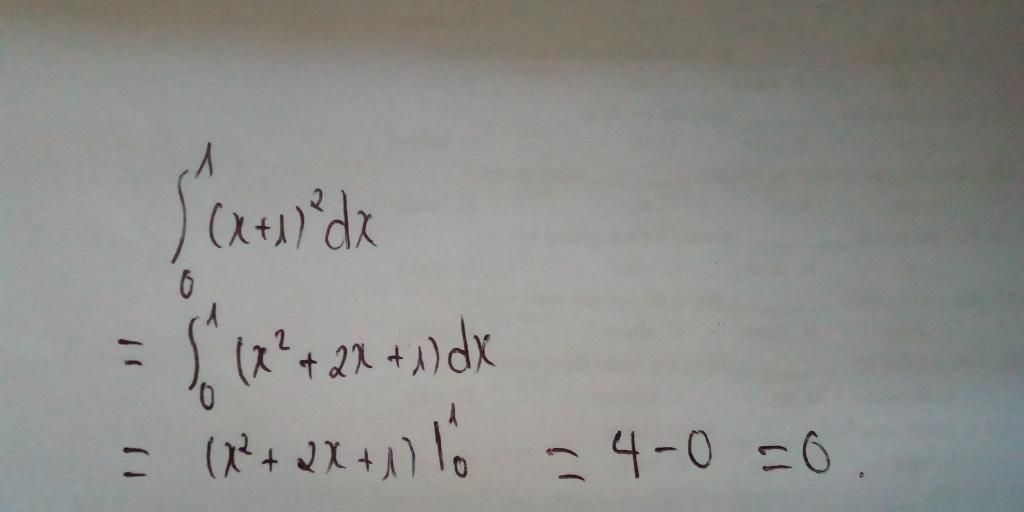 ∫₀¹ (x+1)² dx
= ∫₀¹ (x² + 2x + 1) dx
= (x² + 2x + 1) |₀¹ = 4 - 0 = 0.